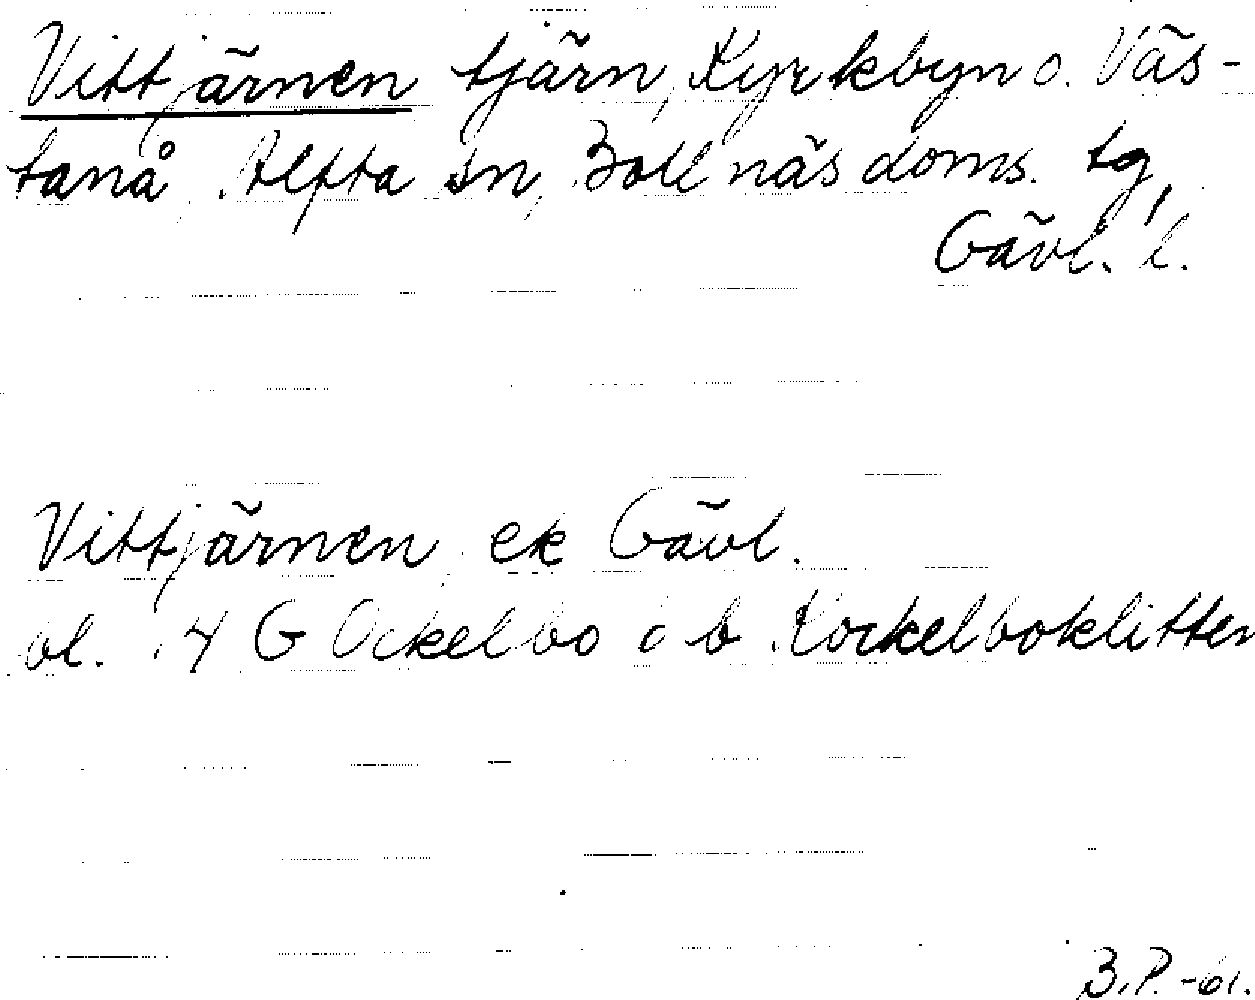 Vittjärnen tjärn, Kyrkbyn o. Väs-
tanå, Alfta sn, Bollnäs doms. tg,
Gävl. l.
Vittjärnen, ek Gävl.
bl. 14 G Ockelbo a b Kockelboklitten
B.P. -61.